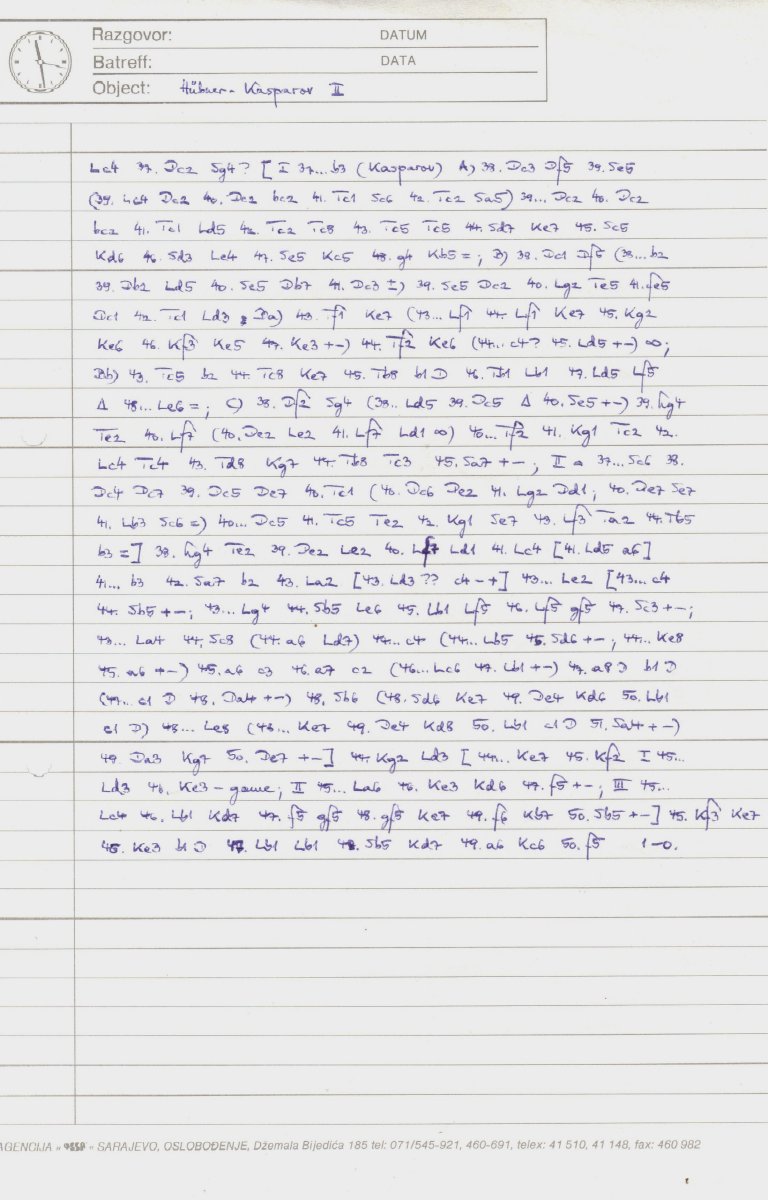 Razgovor: DATUM
Batreff: DATA
Object: Hübner - Kasparov II
Lc4 37. Dc2 Sg4? [ I 37...b3 (Kasparov) A) 38. Dc3 Df5 39. Se5
(39. Lc4 Dc2 40. Dc2 bc2 41. Tc1 Sc6 42. Tc2 Sa5) 39... Dc2 40. Dc2
bc2 41. Tc1 Ld5 42. Tc2 Tc8 43. Tc5 Tc5 44. Sd7 Ke7 45. Sc5
Kd6 46. Sd3 Le4 47. Se5 Kc5 48. g4 Kb5 =; B) 38. Dc1 Df5 (38...b2
39. Db2 Ld5 40. Se5 Db7 41. Dc3 ±) 39. Se5 Dc2 40. Lg2 Te5 41. fe5
Dc1 42. Tc1 Ld3 Ba) 43. Tf1 Ke7 (43... Lf1 44. Lf1 Ke7 45. Kg2
Ke6 46. Kf3 Ke5 47. Ke3 +-) 44. Tf2 Ke6 (44... c4? 45. Ld5 +-) ∞;
Bb) 43. Tc5 b2 44. Tc8 Ke7 45. Tb8 b1D 46. Tb1 Lb1 47. Ld5 Lf5
Δ 48... Le6 =; C) 38. Df2 Sg4 (38.. Ld5 39. Dc5 Δ 40. Se5 +-) 39. hg4
Te2 40. Lf7 (40. De2 Le2 41. Lf7 Ld1 ∞) 40... Tf2 41. Kg1 Tc2 42.
Lc4 Tc4 43. Td8 Kg7 44. Tb8 Tc3 45. Sa7 +-; II 37...Sc6 38.
Dc4 Dc7 39. Dc5 De7 40. Tc1 (40. Dc6 De2 41. Lg2 Dd1; 40. De7 Se7
41. Lb3 Sc6 =) 40... Dc5 41. Tc5 Te2 42. Kg1 Se7 43. Lf3 Ta2 44. Tb5
b3 =] 38. hg4 Te2 39. De2 Le2 40. Lf7 Ld1 41. Lc4 [41. Ld5 a6]
41... b3 42. Sa7 b2 43. La2 [43. Ld3?? c4 -+] 43... Le2 [43... c4
44. Sb5 +-; 43... Lg4 44. Sb5 Le6 45. Lb1 Lf5 46. Lf5 gf5 47. Sc3 +-;
43... La4 44. Sc8 (44. a6 Ld7) 44... c4 (44... Lb5 45. Sd6 +-; 44... Ke8
45. a6 +-) 45. a6 c3 46. a7 c2 (46... Lc6 47. Lb1 +-) 47. a8D b1D
(47... c1D 48. Da4 +-) 48. Sb6 (48. Sd6 Ke7 49. De4 Kd6 50. Lb1
c1D) 48... Le8 (48... Ke7 49. De4 Kd8 50. Lb1 c1D 51. Sa4 +-)
49. Da3 Kg7 50. De7 +-] 44. Kg2 Ld3 [44... Ke7 45. Kf2 I 45...
Ld3 46. Ke3 - game; II 45... La6 46. Ke3 Kd6 47. f5 +-; III 45...
Lc4 46. Lb1 Kd7 47. f5 gf5 48. gf5 Ke7 49. f6 Kb7 50. Sb5 +-] 45. Kf3 Ke7
46. Ke3 b1D 47. Lb1 Lb1 48. Sb5 Kd7 49. a6 Kc6 50. f5 1-0.
AGENCIJA » « SARAJEVO, OSLOBOĐENJE, Džemala Bijedića 185 tel: 071/545-921, 460-691, telex: 41 510, 41 148, fax: 460 982